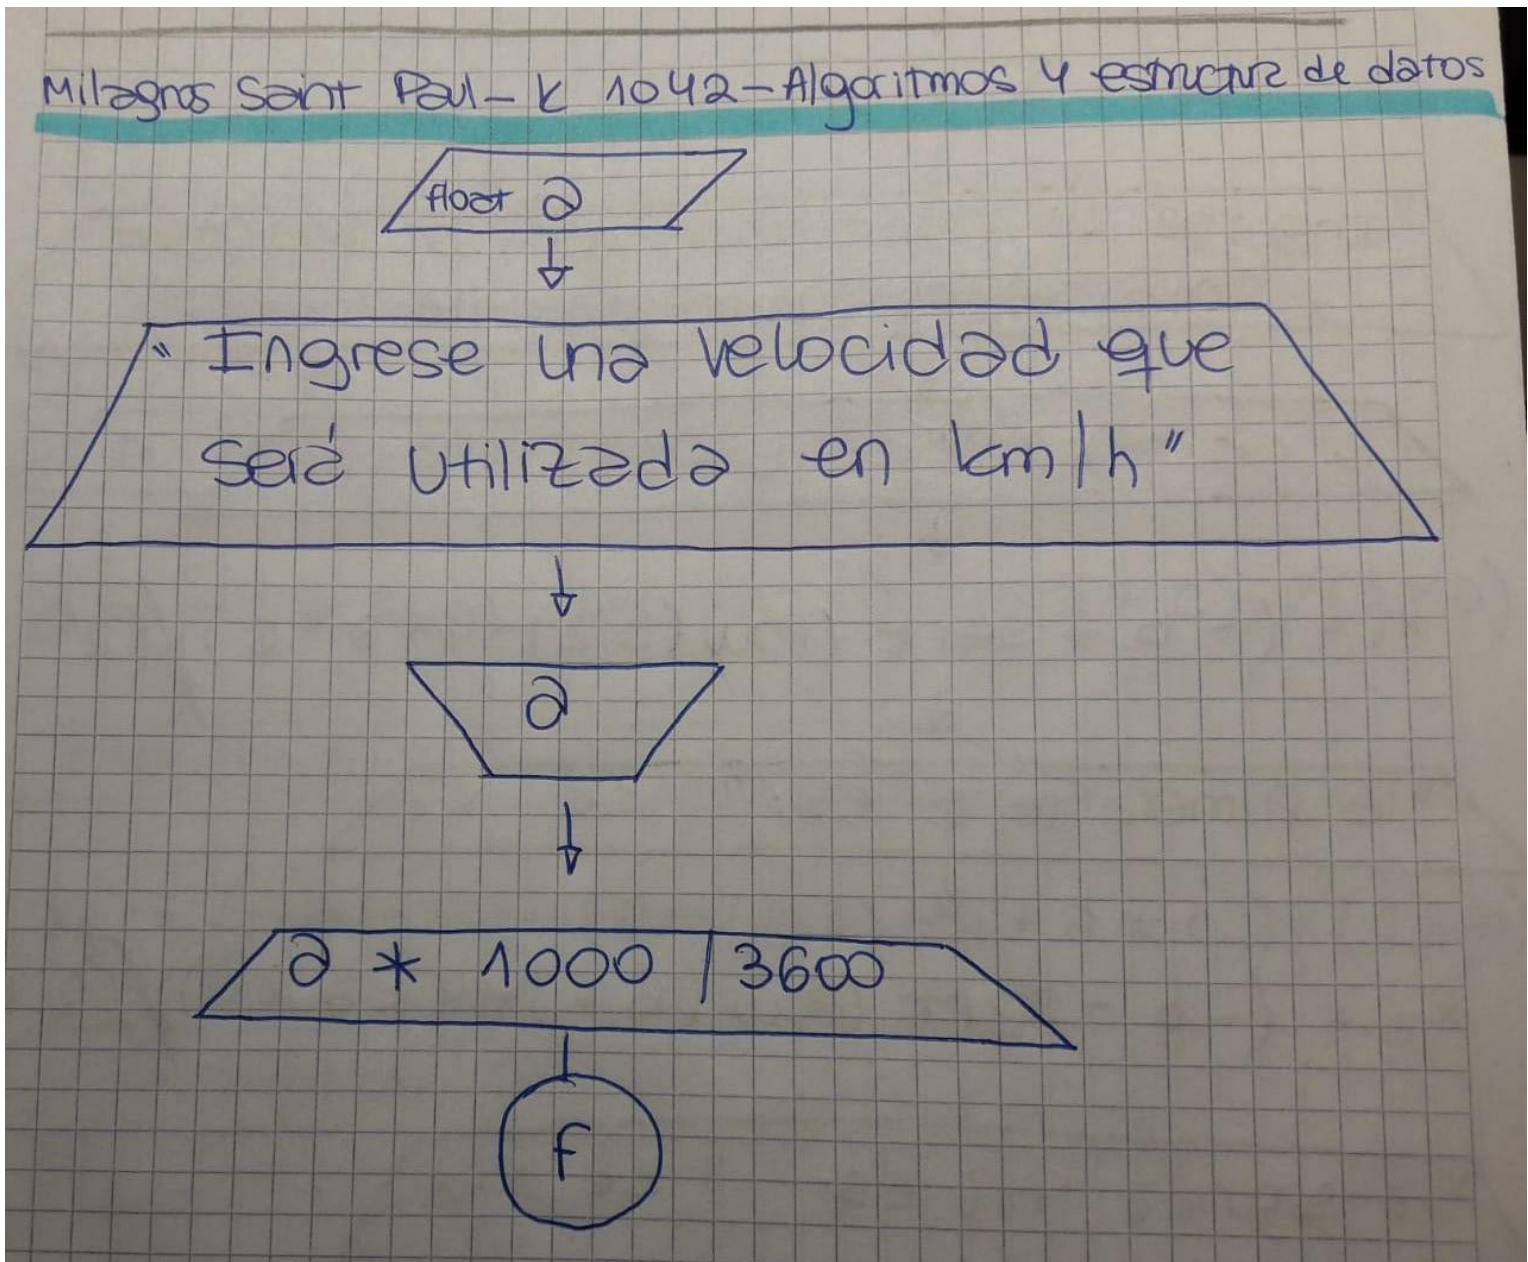 Milagros Saint Paul - K 1042 - Algoritmos y estructura de datos
float a
" Ingrese una velocidad que
será utilizada en km/h"
a
a * 1000 / 3600
F